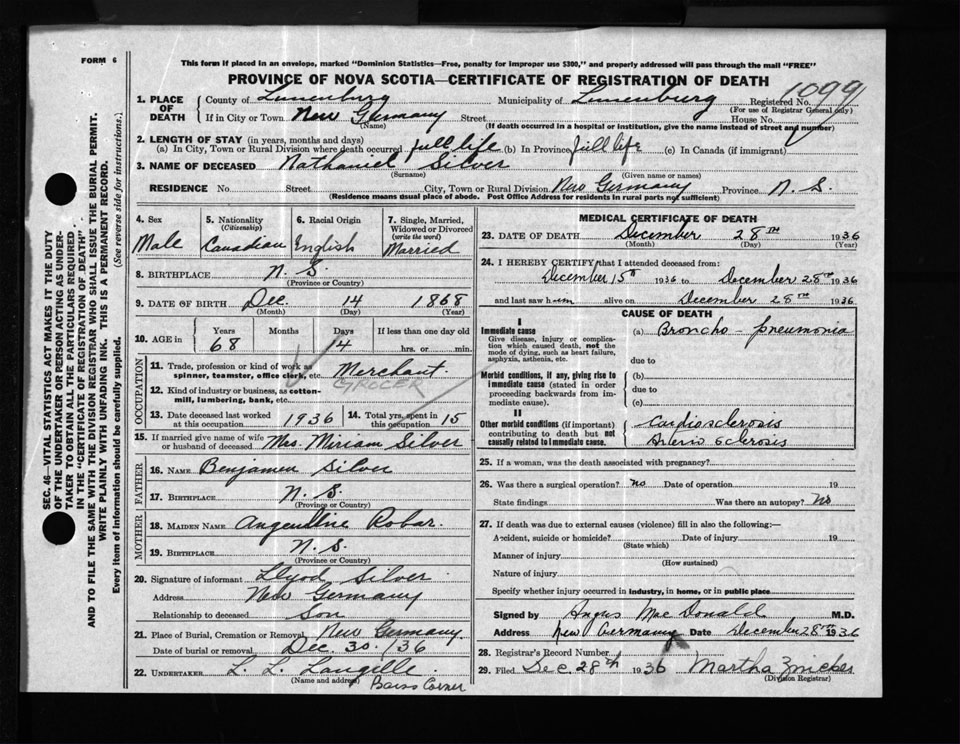 FORM 6
This form if placed in an envelope, marked "Dominion Statistics—Free, penalty for improper use $300," and properly addressed will pass through the mail "FREE"
PROVINCE OF NOVA SCOTIA—CERTIFICATE OF REGISTRATION OF DEATH
1099
1. PLACE OF DEATH County of Lunenburg Municipality of Lunenburg Registered No.
(For use of Registrar General only)
If in City or Town New Germany Street House No.
(Name) (If death occurred in a hospital or institution, give the name instead of street and number)
2. LENGTH OF STAY (in years, months and days)
(a) In City, Town or Rural Division where death occurred full life (b) In Province full life (c) In Canada (if immigrant)
3. NAME OF DECEASED Nathaniel Silver
(Surname) (Given name or names)
RESIDENCE No. Street City, Town or Rural Division New Germany Province N. S.
(Residence means usual place of abode. Post Office Address for residents in rural parts not sufficient)
4. Sex 5. Nationality (Citizenship) 6. Racial Origin 7. Single, Married, Widowed or Divorced (write the word)
Male Canadian English Married
8. BIRTHPLACE N. S.
(Province or Country)
9. DATE OF BIRTH Dec. 14 1868
(Month) (Day) (Year)
10. AGE in Years Months Days If less than one day old
68 14 hrs. or min.
OCCUPATION
11. Trade, profession or kind of work as spinner, teamster, office clerk, etc. Merchant
12. Kind of industry or business, as cotton-mill, lumbering, bank, etc. GROCER
13. Date deceased last worked at this occupation 1936 14. Total yrs. spent in this occupation 15
15. If married give name of wife or husband of deceased Mrs. Miriam Silver
FATHER
16. NAME Benjamen Silver
17. BIRTHPLACE N. S.
(Province or Country)
MOTHER
18. MAIDEN NAME Robar.
19. BIRTHPLACE N. S.
(Province or Country)
20. Signature of informant Llyod Silver
Address New Germany
Relationship to deceased Son
21. Place of Burial, Cremation or Removal New Germany
Date of burial or removal Dec. 30. /36
22. UNDERTAKER L. L. Langille
(Name and address) Barss Corner
MEDICAL CERTIFICATE OF DEATH
23. DATE OF DEATH December 28TH 1936
(Month) (Day) (Year)
24. I HEREBY CERTIFY that I attended deceased from:
December 15th 1936 to December 28th 1936
and last saw him alive on December 28th 1936
CAUSE OF DEATH
I
Immediate cause (a) Broncho-pneumonia
Give disease, injury or complication which caused death, not the mode of dying, such as heart failure, asphyxia, asthenia, etc.
due to
Morbid conditions, if any, giving rise to immediate cause (stated in order proceeding backwards from immediate cause).
(b)
due to
(c)
II
Other morbid conditions (if important) contributing to death but not causally related to immediate cause.
Cardiosclerosis
Arterio sclerosis
25. If a woman, was the death associated with pregnancy?
26. Was there a surgical operation? no Date of operation 19
State findings Was there an autopsy? No
27. If death was due to external causes (violence) fill in also the following:—
Accident, suicide or homicide? Date of injury 19
(State which)
Manner of injury
(How sustained)
Nature of injury
Specify whether injury occurred in industry, in home, or in public place
Signed by Angus MacDonald M.D.
Address New Germany Date December 28th 1936
28. Registrar's Record Number
29. Filed Dec. 28th 1936 Martha Zwicker
(Division Registrar)
SEC. 46—VITAL STATISTICS ACT MAKES IT THE DUTY
OF THE UNDERTAKER OR PERSON ACTING AS UNDER-
TAKER TO OBTAIN ALL THE PARTICULARS REQUIRED
IN THE "CERTIFICATE OF REGISTRATION OF DEATH"
AND TO FILE THE SAME WITH THE DIVISION REGISTRAR WHO SHALL ISSUE THE BURIAL PERMIT.
WRITE PLAINLY WITH UNFADING INK. THIS IS A PERMANENT RECORD.
Every item of information should be carefully supplied. (See reverse side for instructions.)